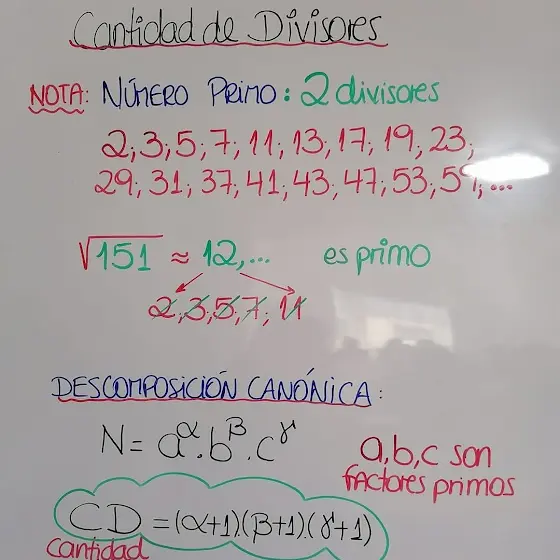 Cantidad de Divisores
NOTA: NÚMERO PRIMO: 2 divisores
2; 3; 5; 7; 11; 13; 17; 19; 23;
29; 31; 37; 41; 43; 47; 53; 59; ...
√151 ≈ 12,... es primo
2; 3; 5; 7; 11
DESCOMPOSICIÓN CANÓNICA:
N = a^α . b^β . c^γ
a,b,c son
factores primos
CD = (α+1)(β+1)(γ+1)
cantidad